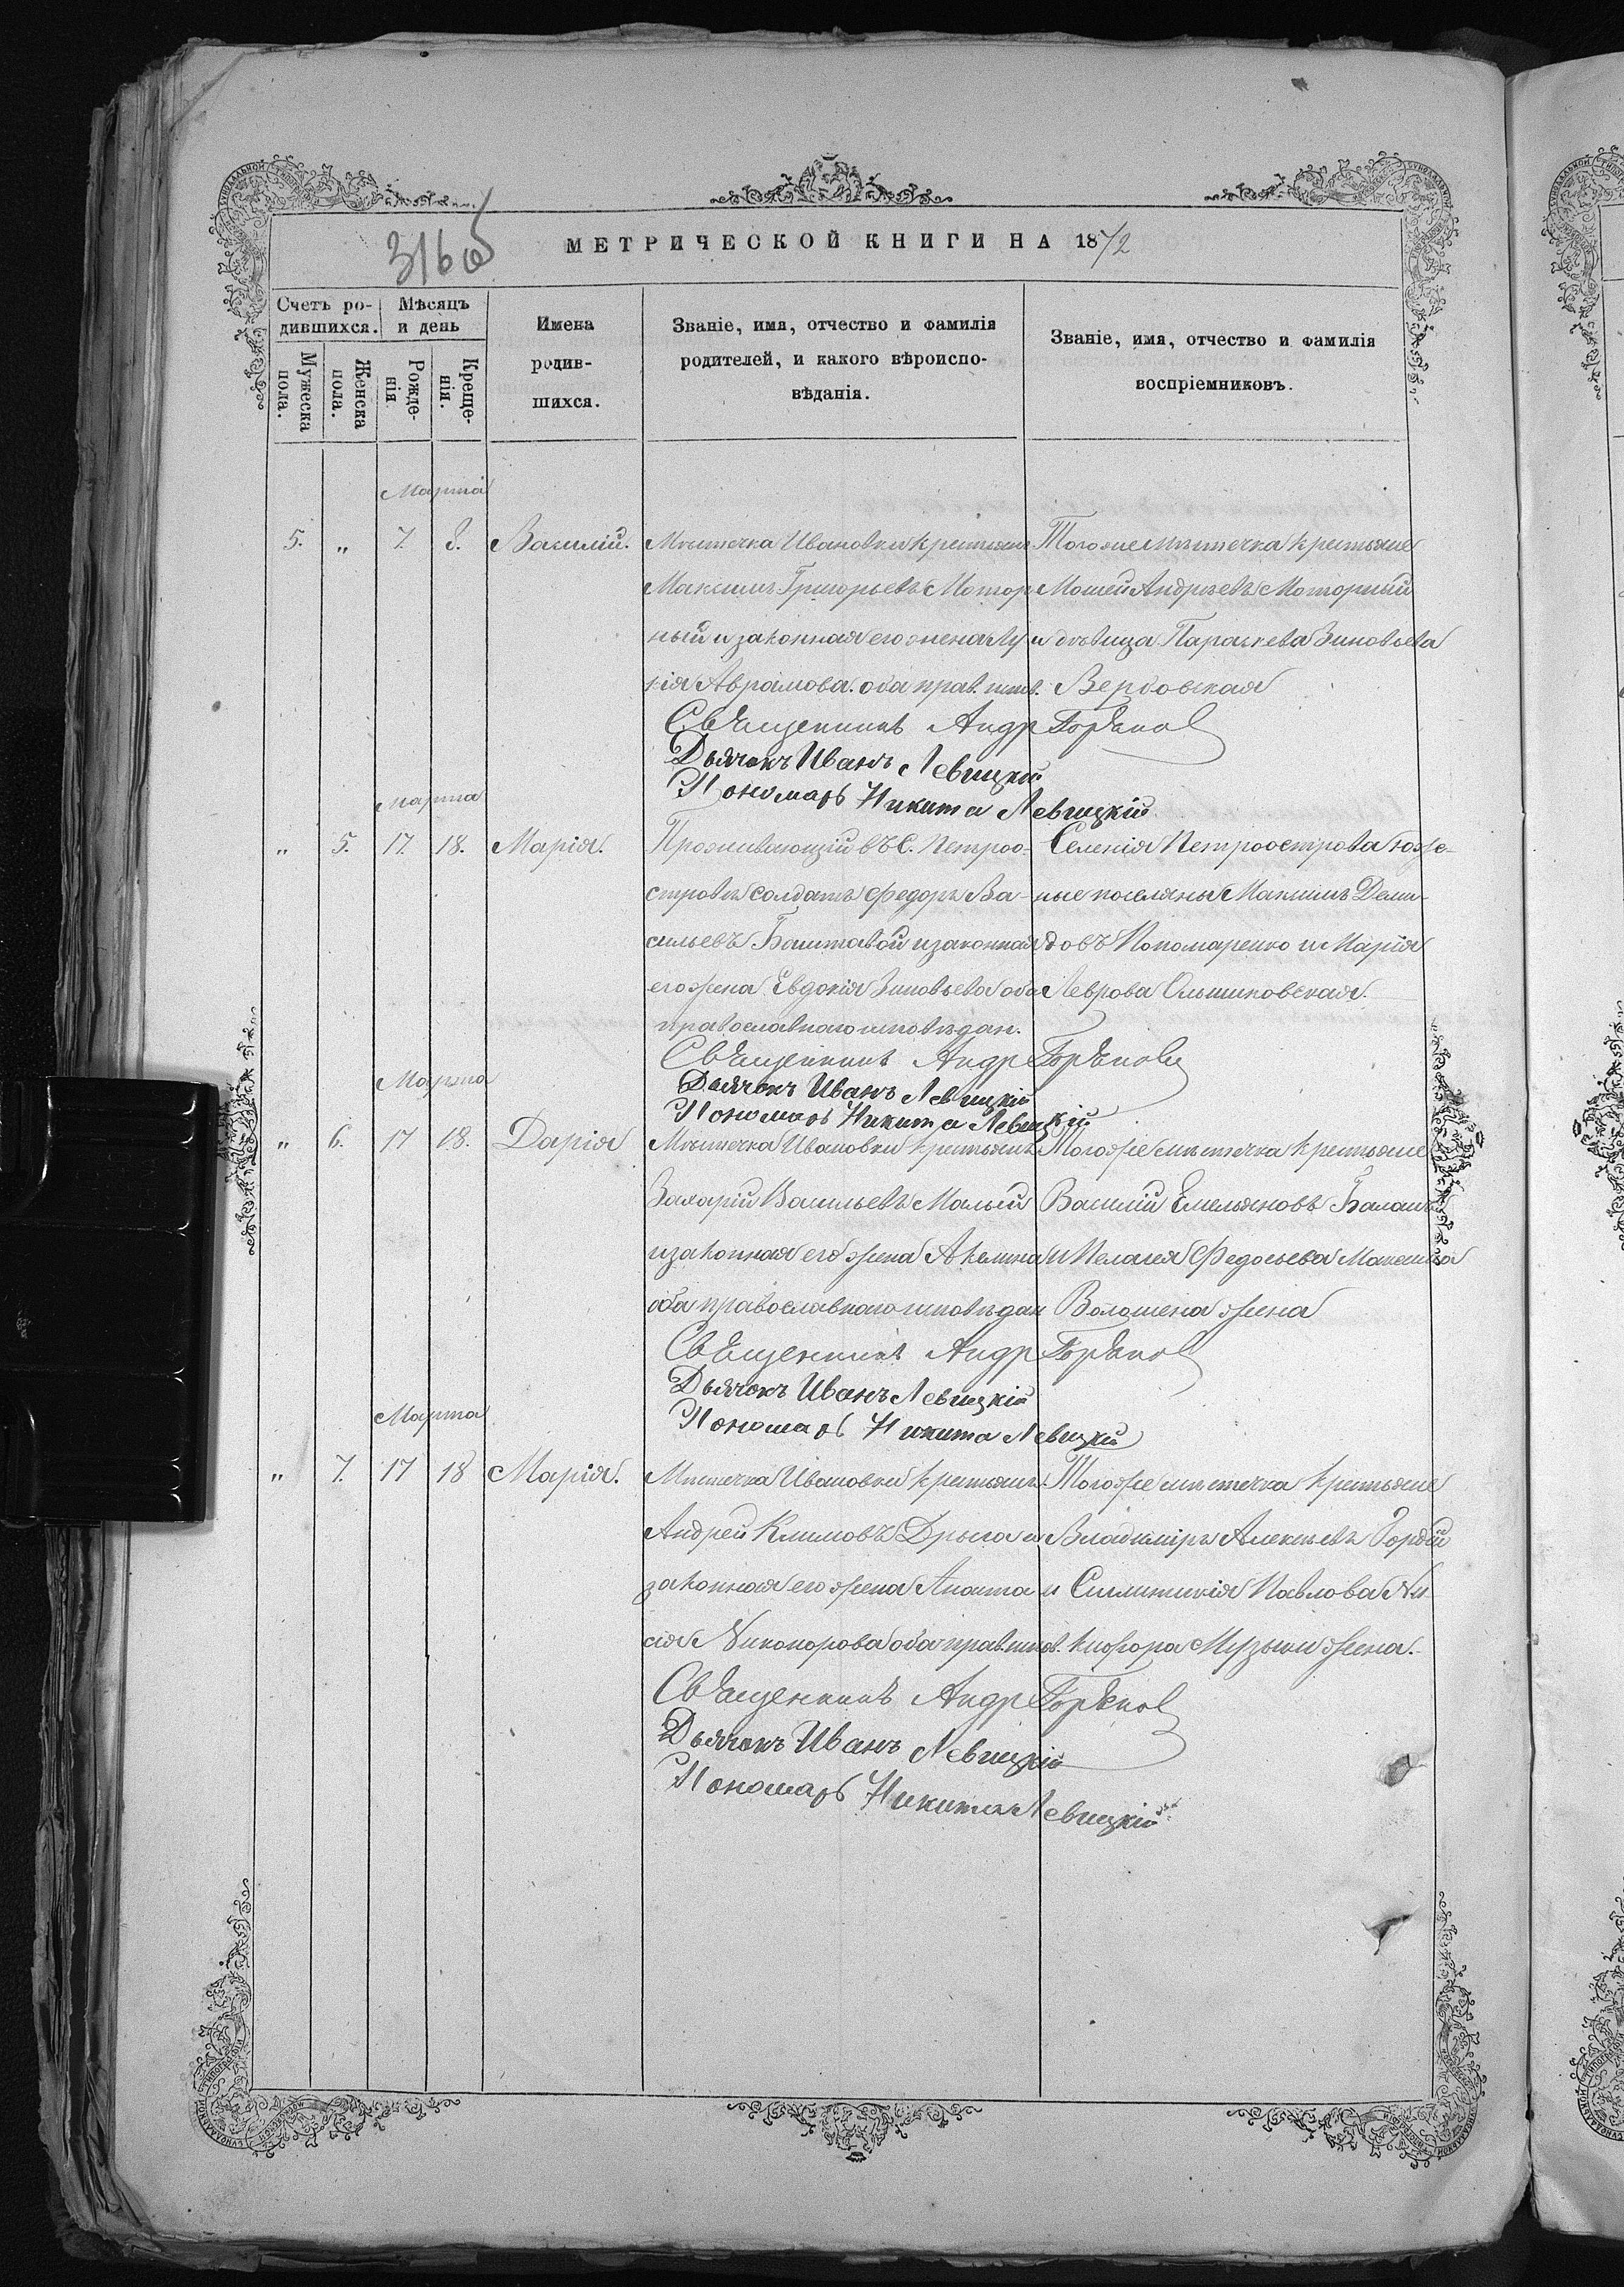 316 об
МЕТРИЧЕСКОЙ КНИГИ НА 1872
Счетъ ро-
дившихся.
Мѣсяцъ
и день
Мужеска
пола.
Женска
пола.
Рожде-
нія
Креще-
нія.
Имена
родив-
шихся.
Званіе, имя, отчество и фамилія
родителей, и какого вѣроиспо-
вѣданія.
Званіе, имя, отчество и фамилія
воспріемниковъ.
Марта
5. „ 7. 8. Василій.
Мѣстечка Ивановки крестьян
Максимъ Григорьевъ Мотор
ный и законная его жена Лу
кія Аврамова. оба прав. испов.
Тогоже мѣстечка крестьяне
Мосей Андреевъ Моторный
и дѣвица Параскева Зиновьева
Вербовская
Священникъ Андр
Дьячокъ Иванъ Левицкій
Пономарь Никита Левицкій
марта
„ 5. 17. 18. Марія.
Проживающій въ С. Петроо-
стровѣ солдатъ Федоръ Ва-
сильевъ Баштавой и законная
его жена Евдокія Зиновьева оба
православнаго исповѣдан.
Селенія Петроострова
ные поселяны Максимъ Деми-
довъ Пономаренко и Марія
Леврова
Священникъ Андр
Дьячокъ Иванъ Левицкій
Пономарь Никита Левицкій
Марта
„ 6. 17 18. Дарія
Мѣстечка Ивановки крестьянъ
Захарій Васильевъ Малый
и законная его жена
оба православнаго исповѣдан
Тогоже мѣстечка крестьяне
Василій Емельяновъ
и Пелагея Федосьева Максима
Волошена жена
Священникъ Андр
Дьячокъ Иванъ Левицкій
Пономарь Никита Левицкій
Марта
„ 7. 17 18 Марія.
Мѣстечка Ивановки крестьянъ.
Андрей Климовъ Дрыга и
законная его жена Анаста
сія Никонорова оба прав. испов.
Тогоже мѣстечка крестьяне
Владиміръ Алексѣевъ Гордѣй
и Синклитикія Павлова Ни
кифора Музыки жена.
Священникъ Андр
Дьячокъ Иванъ Левицкій
Пономарь Никита Левицкій